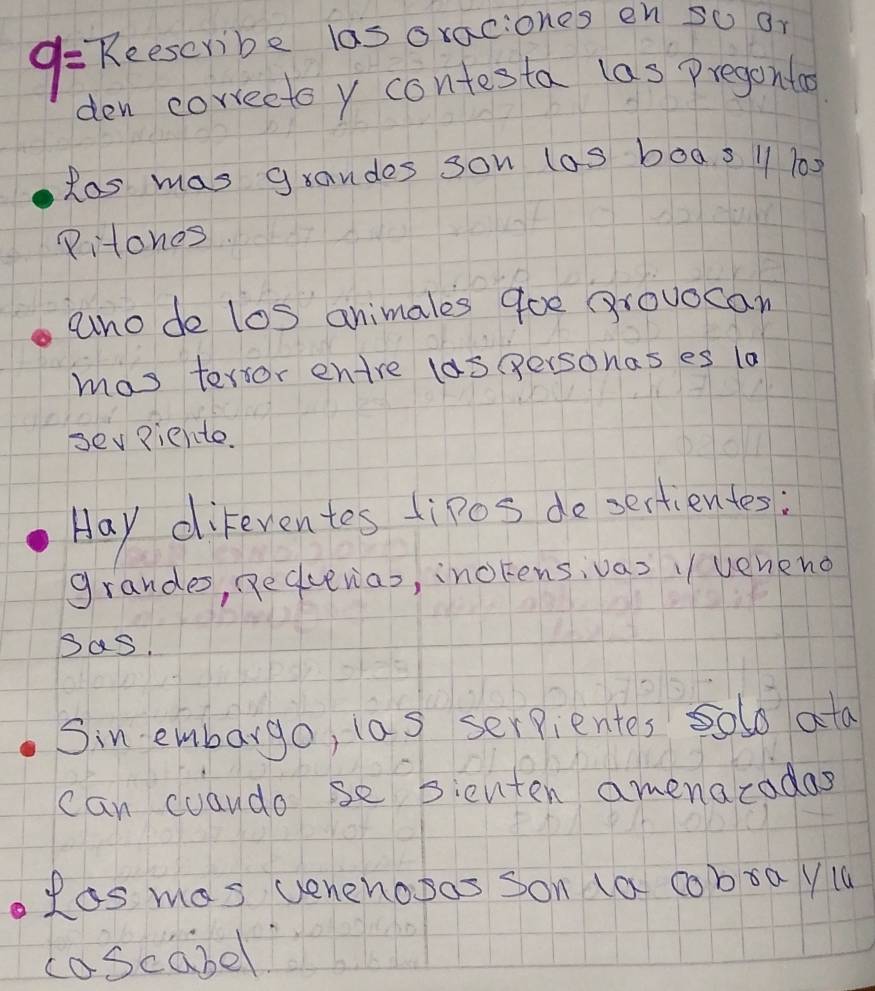 9= Reescribe las oraciones en su or
den correcto y contesta las preguntas.
Las mas grandes son las boas y los
Pitones
uno de los animales que provocan
mas terror entre las personas es la
serpiente.
Hay diferentes tipos de sertientes:
grandes, pequeñas, inofensivas y veneno
sas.
Sin embargo, las serpientes solo ata
can cuando se sienten amenazadas
Las mas venenosas son la cobra y la
cascabel.